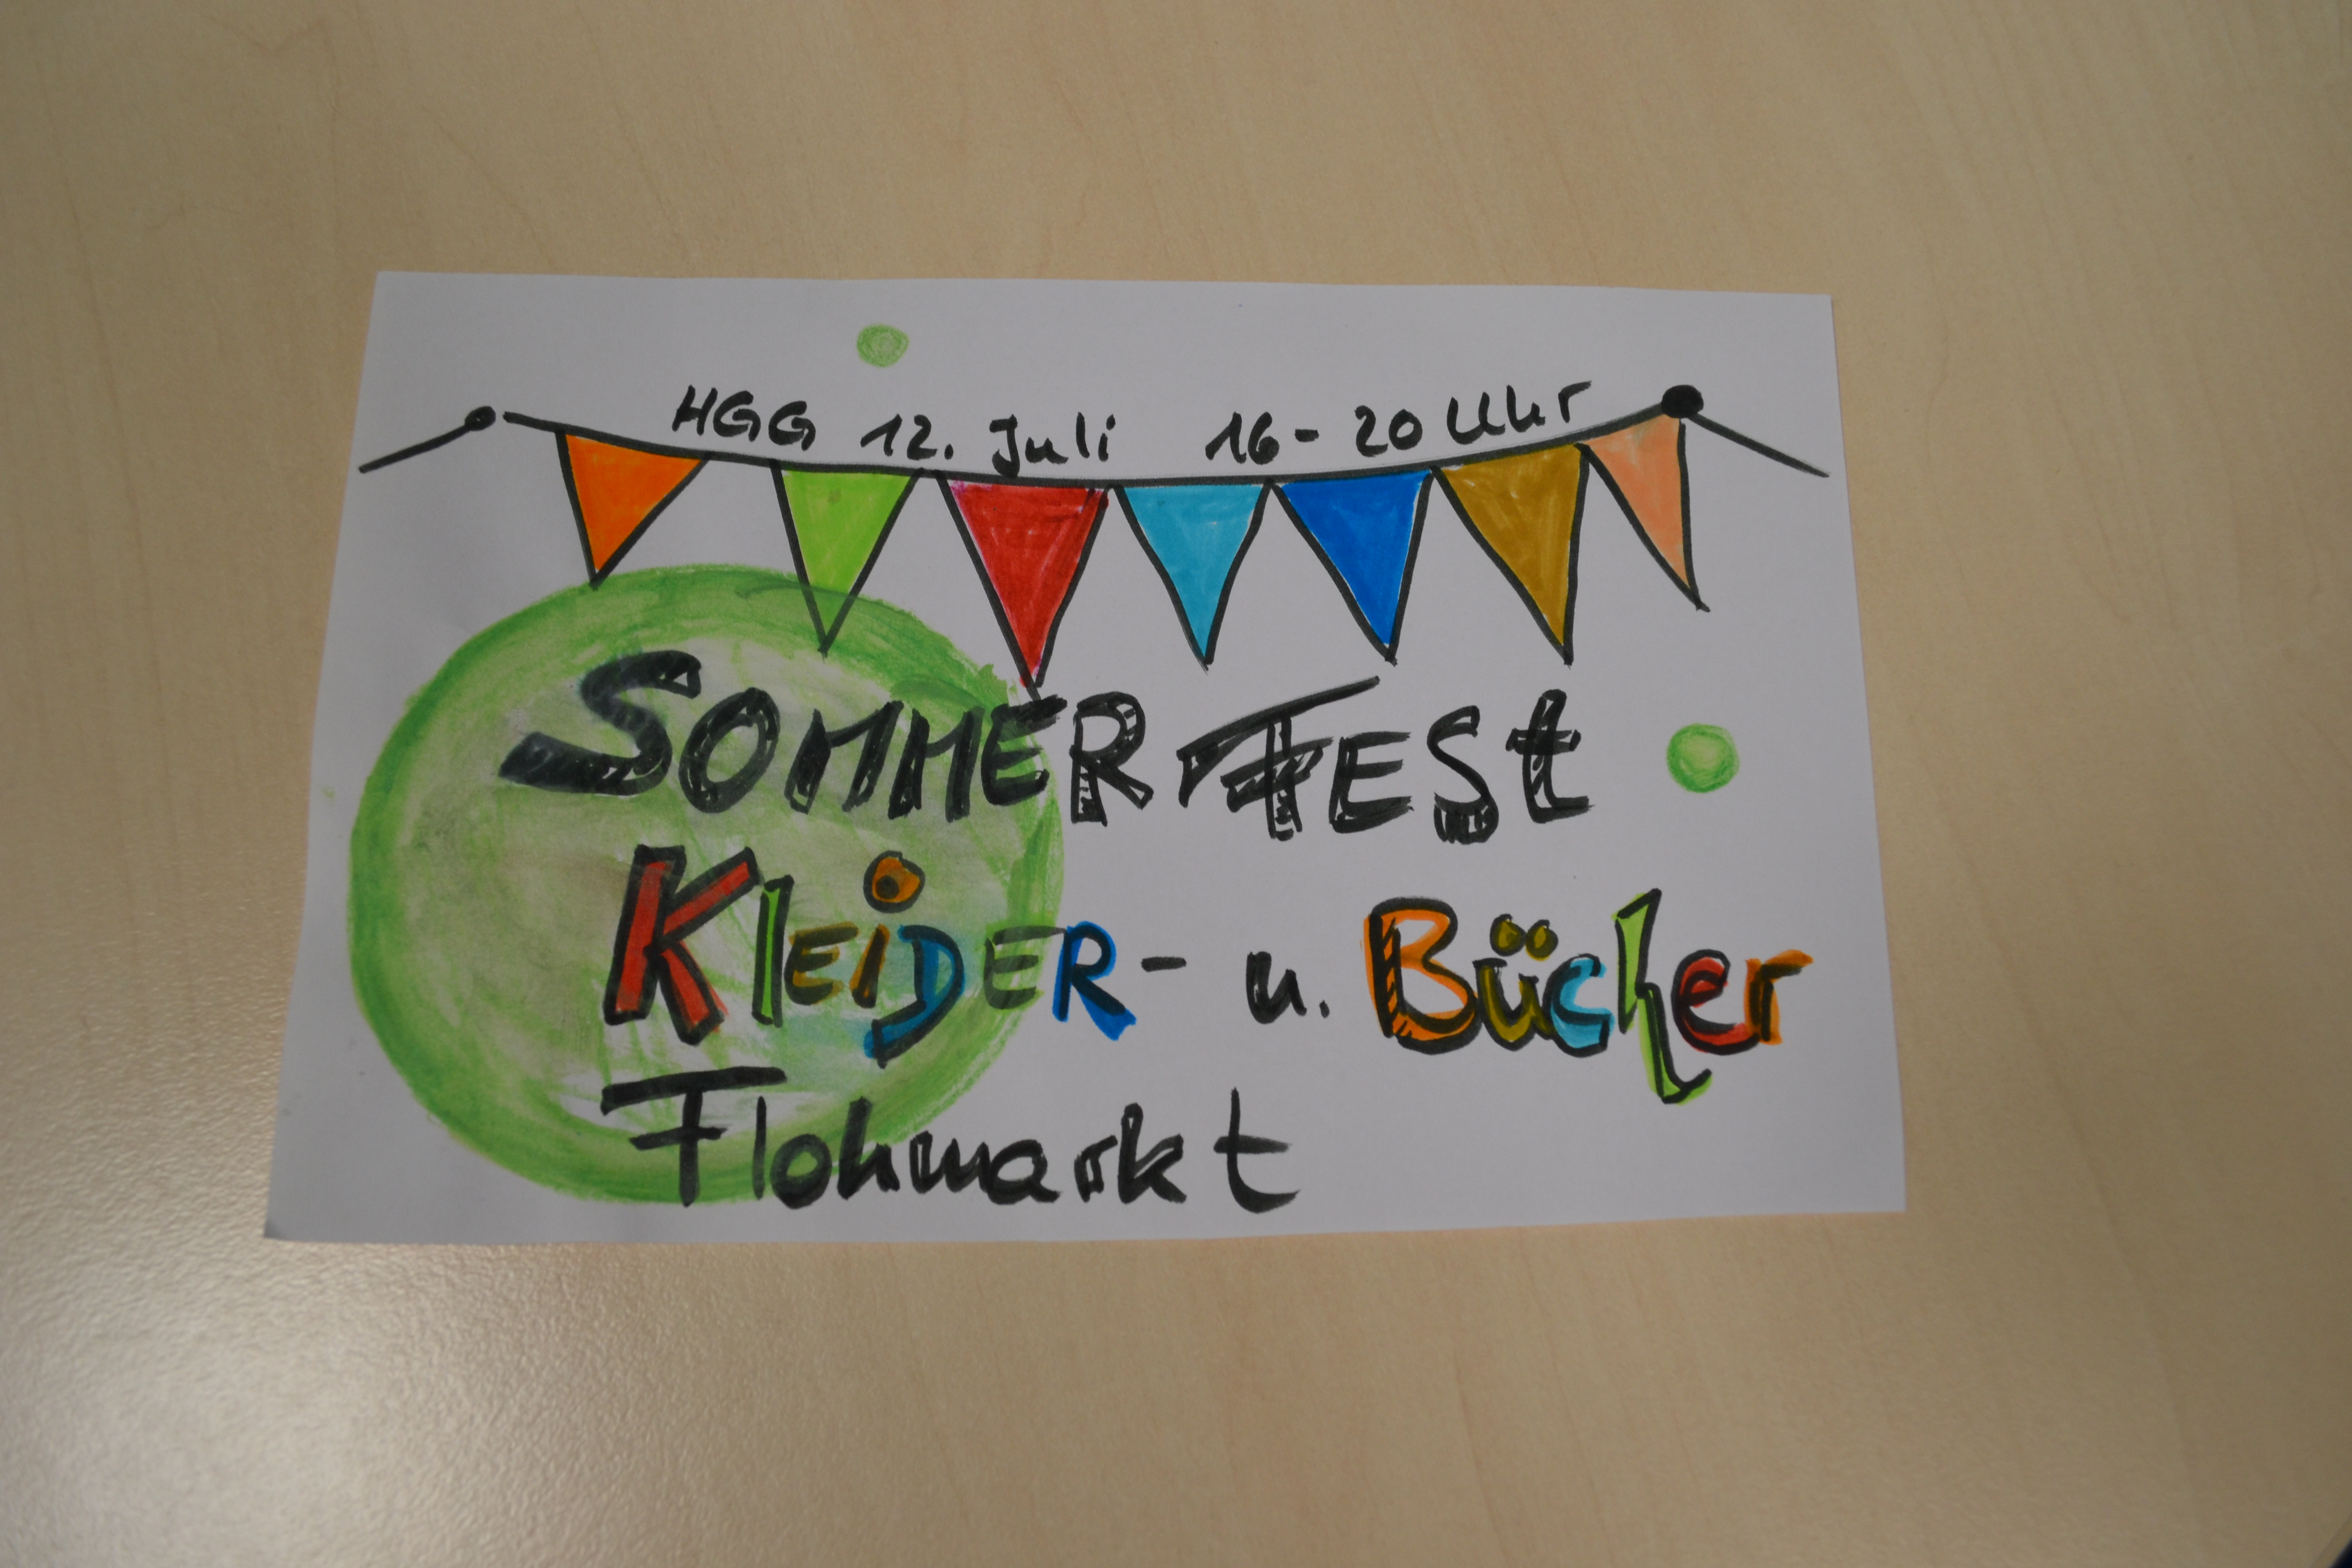 HGG 12. Juli 16-20 Uhr
SOMMERFESt
KlEiDER- u. Bücher
Flohmarkt